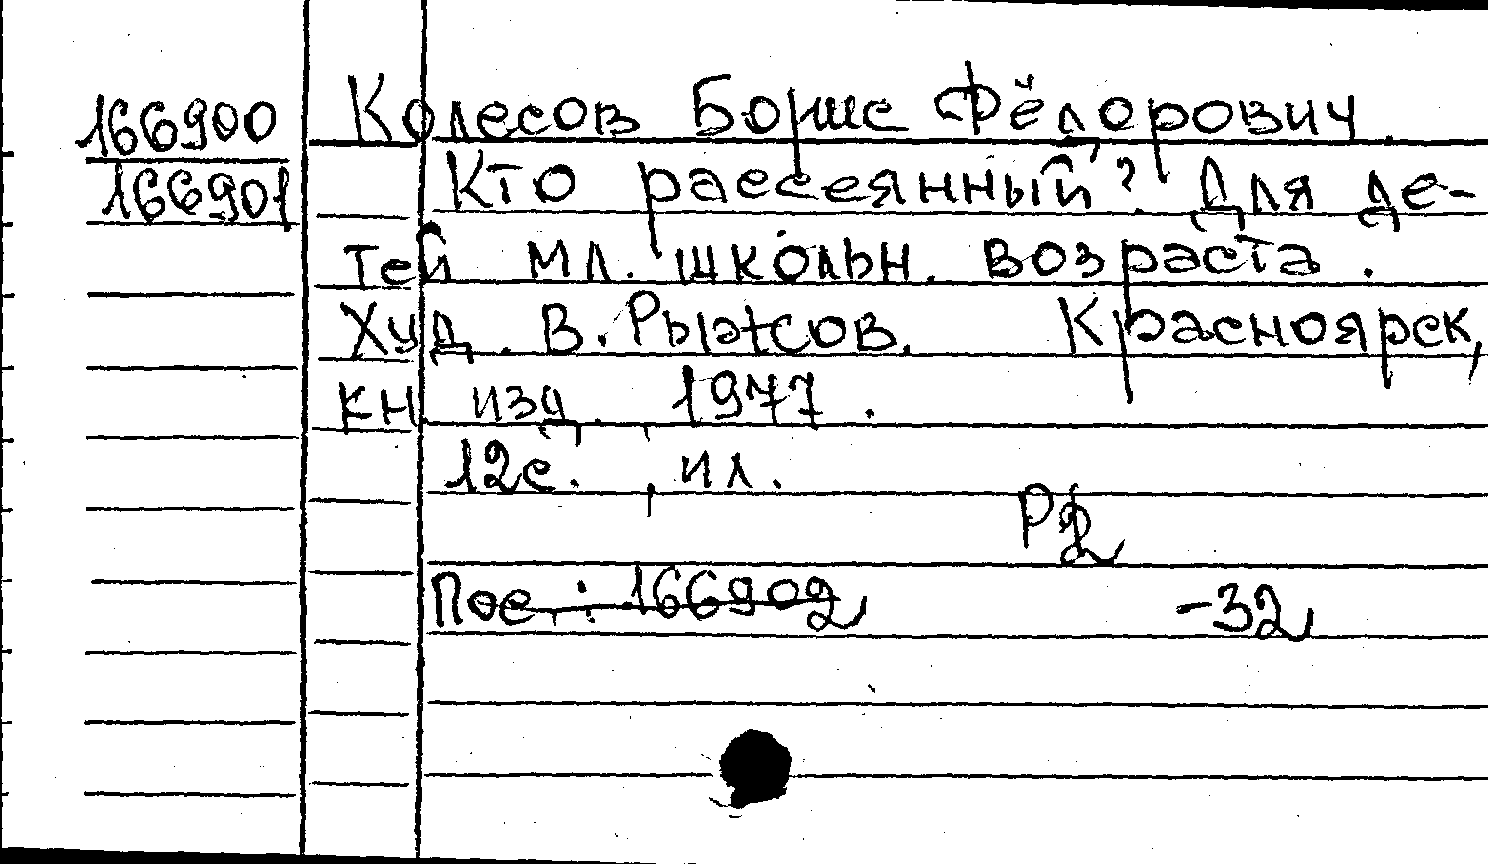 166900
166901
Колесов Борис Фёдорович.
Кто рассеянный? Для де-
тей мл. школьн. возраста.
Худ. В. Рыжов. Красноярск,
кн. изд., 1977.
12с., ил.
Р2
Пос.: 166902 -32